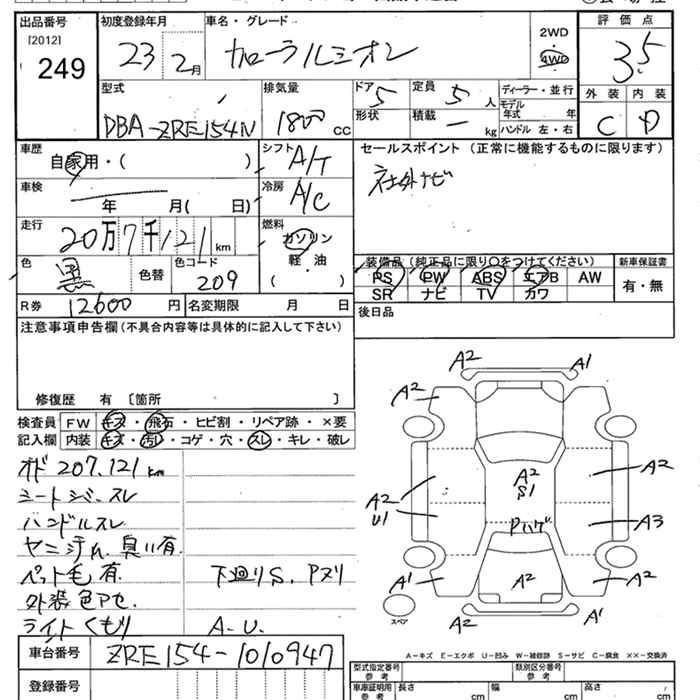 出品番号 初度登録年月 車名・グレード 2WD 評価点
[2012] 249 23 2月 カローラルミオン 4WD 3.5
外装 内装
C D
型式 排気量 ドア 定員 ディーラー・並行
DBA-ZRE154N 1800cc 5 5人 モデル年式 年
形状 積載 kg ハンドル 左・右
車歴 自家用・( ) シフト A/T セールスポイント(正常に機能するものに限ります)
社外ナビ
車検 年 月( 日) 冷房 A/C
走行 20万7千121km 燃料 ガソリン
軽・油
( )
色 黒 色替 色コード 209
装備品(純正品に限り○をつけてください) 新車保証書
PS PW ABS エアB AW 有・無
SR ナビ TV カワ
R券 12600円 名変期限 月 日 後日品
注意事項申告欄(不具合内容等は具体的に記入して下さい)
修復歴 有 〔箇所 〕
検査員 FW キズ・飛石・ヒビ割・リペア跡・×要
記入欄 内装 キズ・汚れ・コゲ・穴・スレ・キレ・破レ
オド 207,121km
シートシミ、スレ
ハンドルスレ
臭い有
ペット毛有 下廻りS、Pヌリ
外装色アセ
ライトくもり A-U
車台番号 ZRE154-1010947
登録番号
A2 A1
A2
A2
S1
A2
A2
U1
A3
Pハゲ
A1 A2 A2
スペア A2 A1
A-キズ E-エクボ U-凹み W-補修跡 S-サビ C-腐食 XX-交換済
型式指定番号 参考 類別区分番号 参考
車庫証明用 参考 長さ cm 幅 cm 高さ cm